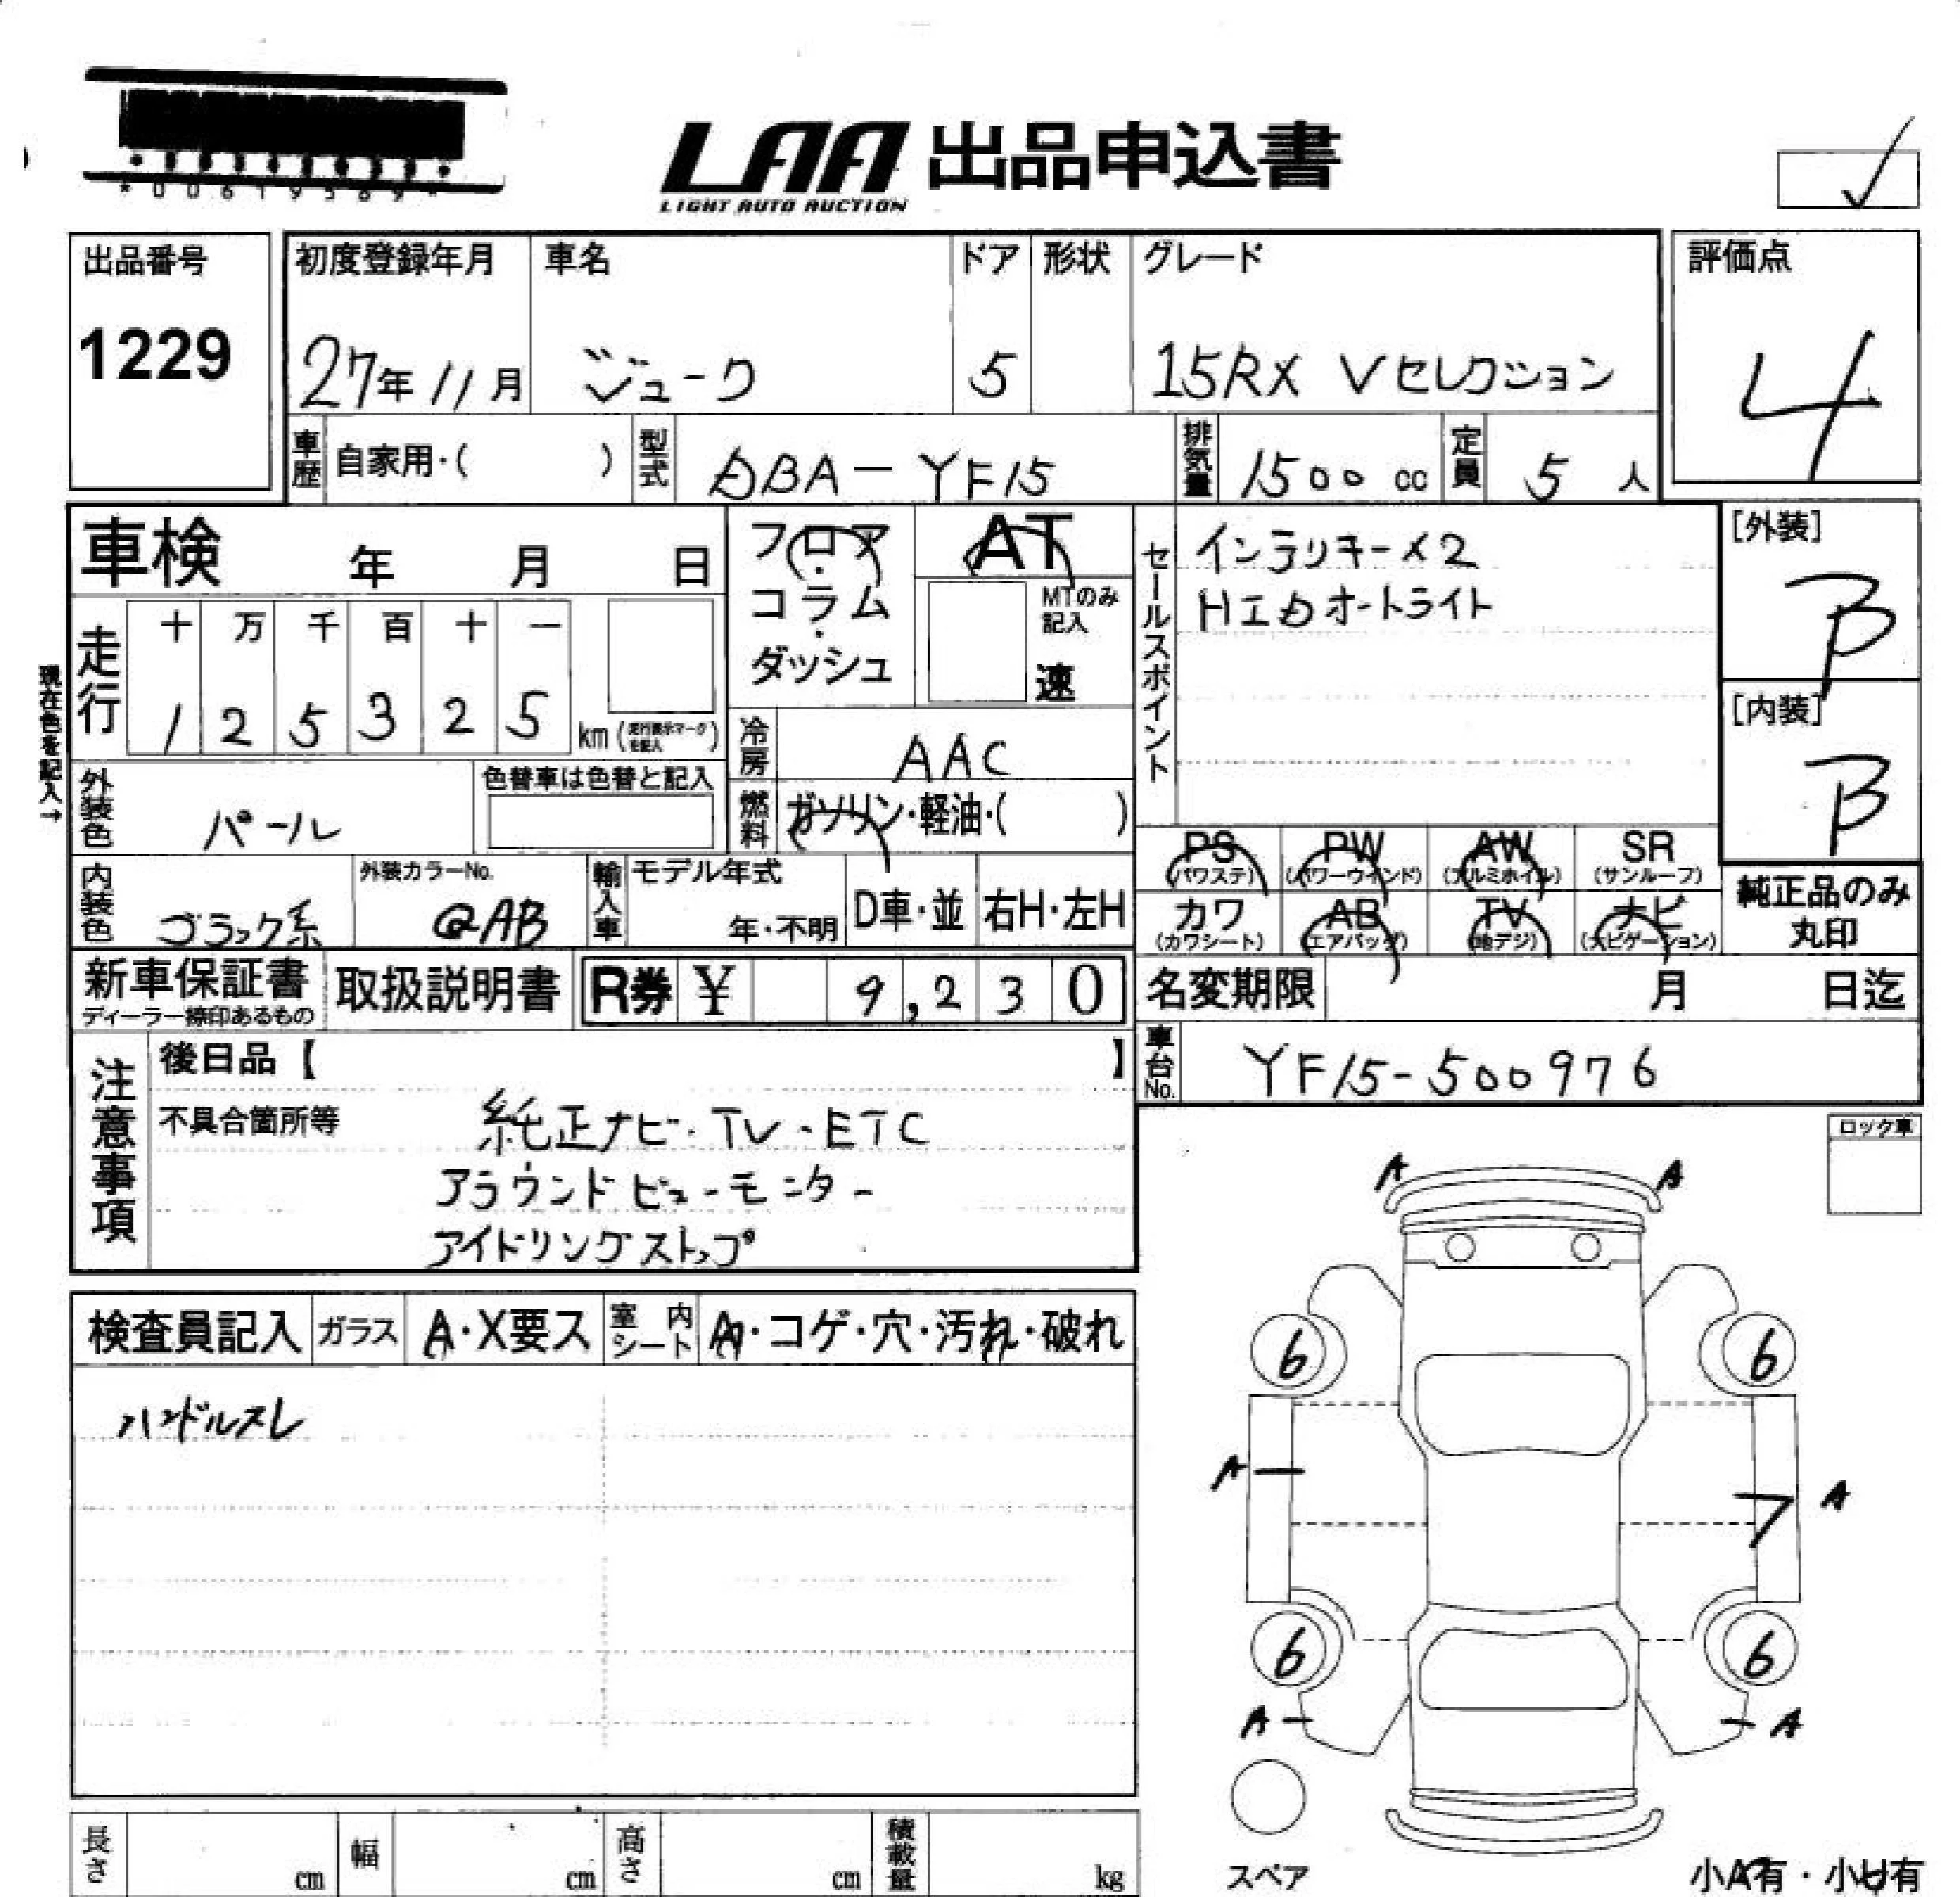 *00619569*
LAA 出品申込書
LIGHT AUTO AUCTION
出品番号
1229
初度登録年月
27年11月
車名
ジューク
ドア
5
形状
グレード
15RX Vセレクション
評価点
4
車歴
自家用・( )
型式
DBA-YF15
排気量
1500 cc
定員
5 人
車検 年 月 日
フロア
・
コラム
・
ダッシュ
AT
MTのみ
記入
速
セールスポイント
インテリキー×2
HIDオートライト
[外装]
B
[内装]
B
現在色を記入→
走行
十 万 千 百 十 一
1 2 5 3 2 5
km (走行表示マークを記入)
冷房
AAC
外装色
パール
色替車は色替と記入
燃料
ガソリン・軽油・( )
内装色
ブラック系
外装カラーNo.
@AB
輸入車
モデル年式
年・不明
D車・並
右H・左H
PS
(パワステ)
PW
(パワーウインド)
AW
(アルミホイル)
SR
(サンルーフ)
カワ
(カワシート)
AB
(エアバッグ)
TV
(地デジ)
ナビ
(ナビゲーション)
純正品のみ
丸印
新車保証書
ディーラー捺印あるもの
取扱説明書
R券 ¥ 9,230
名変期限 月 日迄
車台No.
YF15-500976
注意事項
後日品【 】
不具合箇所等
純正ナビ・TV・ETC
アラウンドビューモニター
アイドリングストップ
ロック車
検査員記入
ガラス
A・X要ス
室内シート
A・コゲ・穴・汚れ・破れ
ハンドルスレ
A A
6 6
A A
6 6
A A
スペア
小A有・小U有
長さ cm
幅 cm
高さ cm
積載量 kg